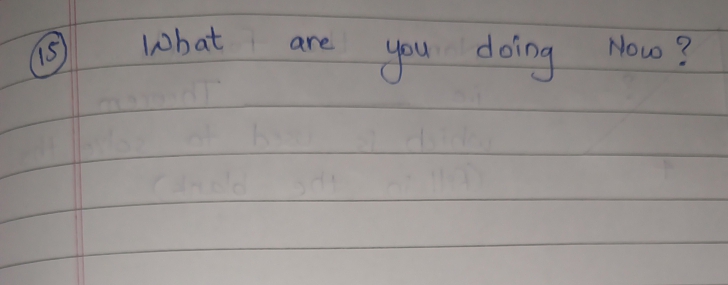 15 What are you doing Now?